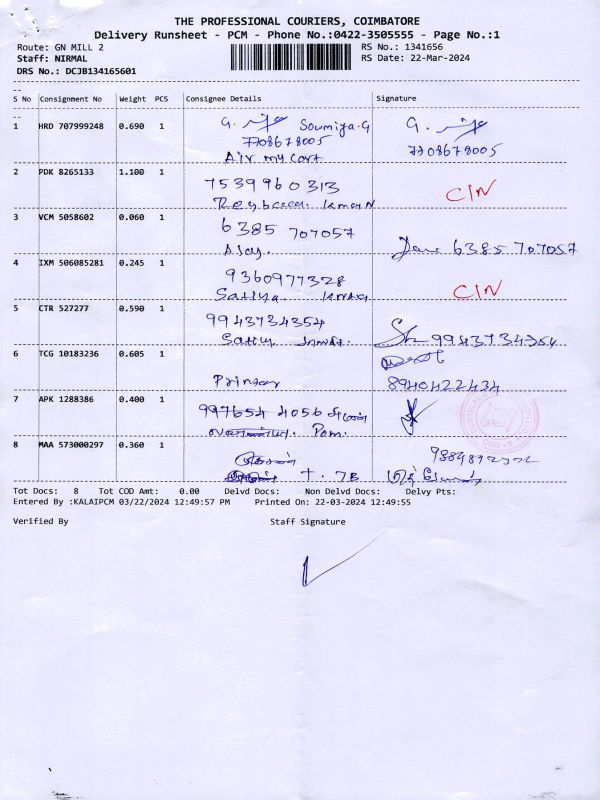 THE PROFESSIONAL COURIERS, COIMBATORE
Delivery Runsheet - PCM - Phone No.:0422-3505555 - Page No.:1
Route: GN MILL 2
RS No.: 1341656
Staff: NIRMAL
RS Date: 22-Mar-2024
DRS No.: DCJB134165601
S No Consignment No Weight PCS Consignee Details Signature
1 HRD 707999248 0.690 1 G. Soumiya.G G.
7708678005 7708678005
Air my cart
2 PDK 8265133 1.100 1 7539960313 CIN
3 VCM 5058602 0.060 1 6385 707057 6385 707057
4 IXM 506085281 0.245 1 9360977328 CIN
Sathya
5 CTR 527277 0.590 1 9943734354 9943734354
6 TCG 10183236 0.605 1
8940422434
7 APK 1288386 0.400 1 997654 4056
8 MAA 573000297 0.360 1
T. 7B
Tot Docs: 8 Tot COD Amt: 0.00 Delvd Docs: Non Delvd Docs: Delvy Pts:
Entered By :KALAIPCM 03/22/2024 12:49:57 PM Printed On: 22-03-2024 12:49:55
Verified By Staff Signature